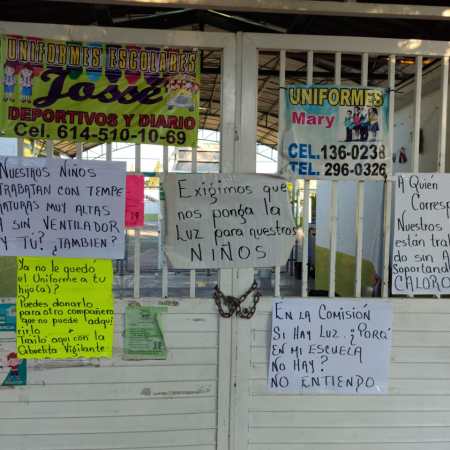 UNIFORMES ESCOLARES
Jossé
DEPORTIVOS Y DIARIO
Cel. 614-510-10-69
UNIFORMES
Mary
CEL.136-0238
TEL. 296-0326
NUESTROS NIÑOS
TRABATAN CON TEMPE
RATURAS MUY ALTAS
Y SIN VENTILADOR
Y TU? ¿TAMBIEN?
EXIGIMOS QUE
NOS PONGA LA
LUZ PARA NUESTROS
NIÑOS
A QUIÉN
CORRESP
NUESTROS
ESTÁN TRAB
DO SIN A
SOPORTAND
CALORO
Ya no le quedó
el Uniforme a tu
hijo(a)?
Puedes donarlo
para otro compañero
que no puede adqui
rirlo
Trailo aquí con la
Abuelita Vigilante
EN LA COMISIÓN
SI HAY LUZ. ¿PORQÚ
EN MI ESCUELA
NO HAY?
NO ENTIENDO